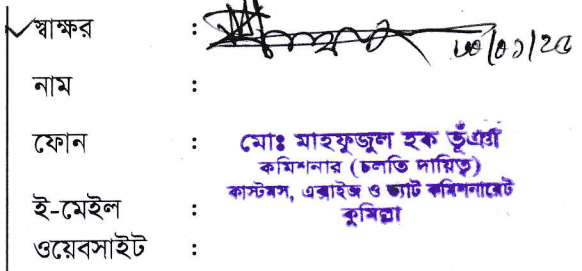 স্বাক্ষর :
৩০/০১/২৫
নাম :
ফোন :
মোঃ মাহফুজুল হক ভূঁঞা
কমিশনার (চলতি দায়িত্ব)
কাস্টমস, এক্সাইজ ও ভ্যাট কমিশনারেট
ই-মেইল :
কুমিল্লা
ওয়েবসাইট :